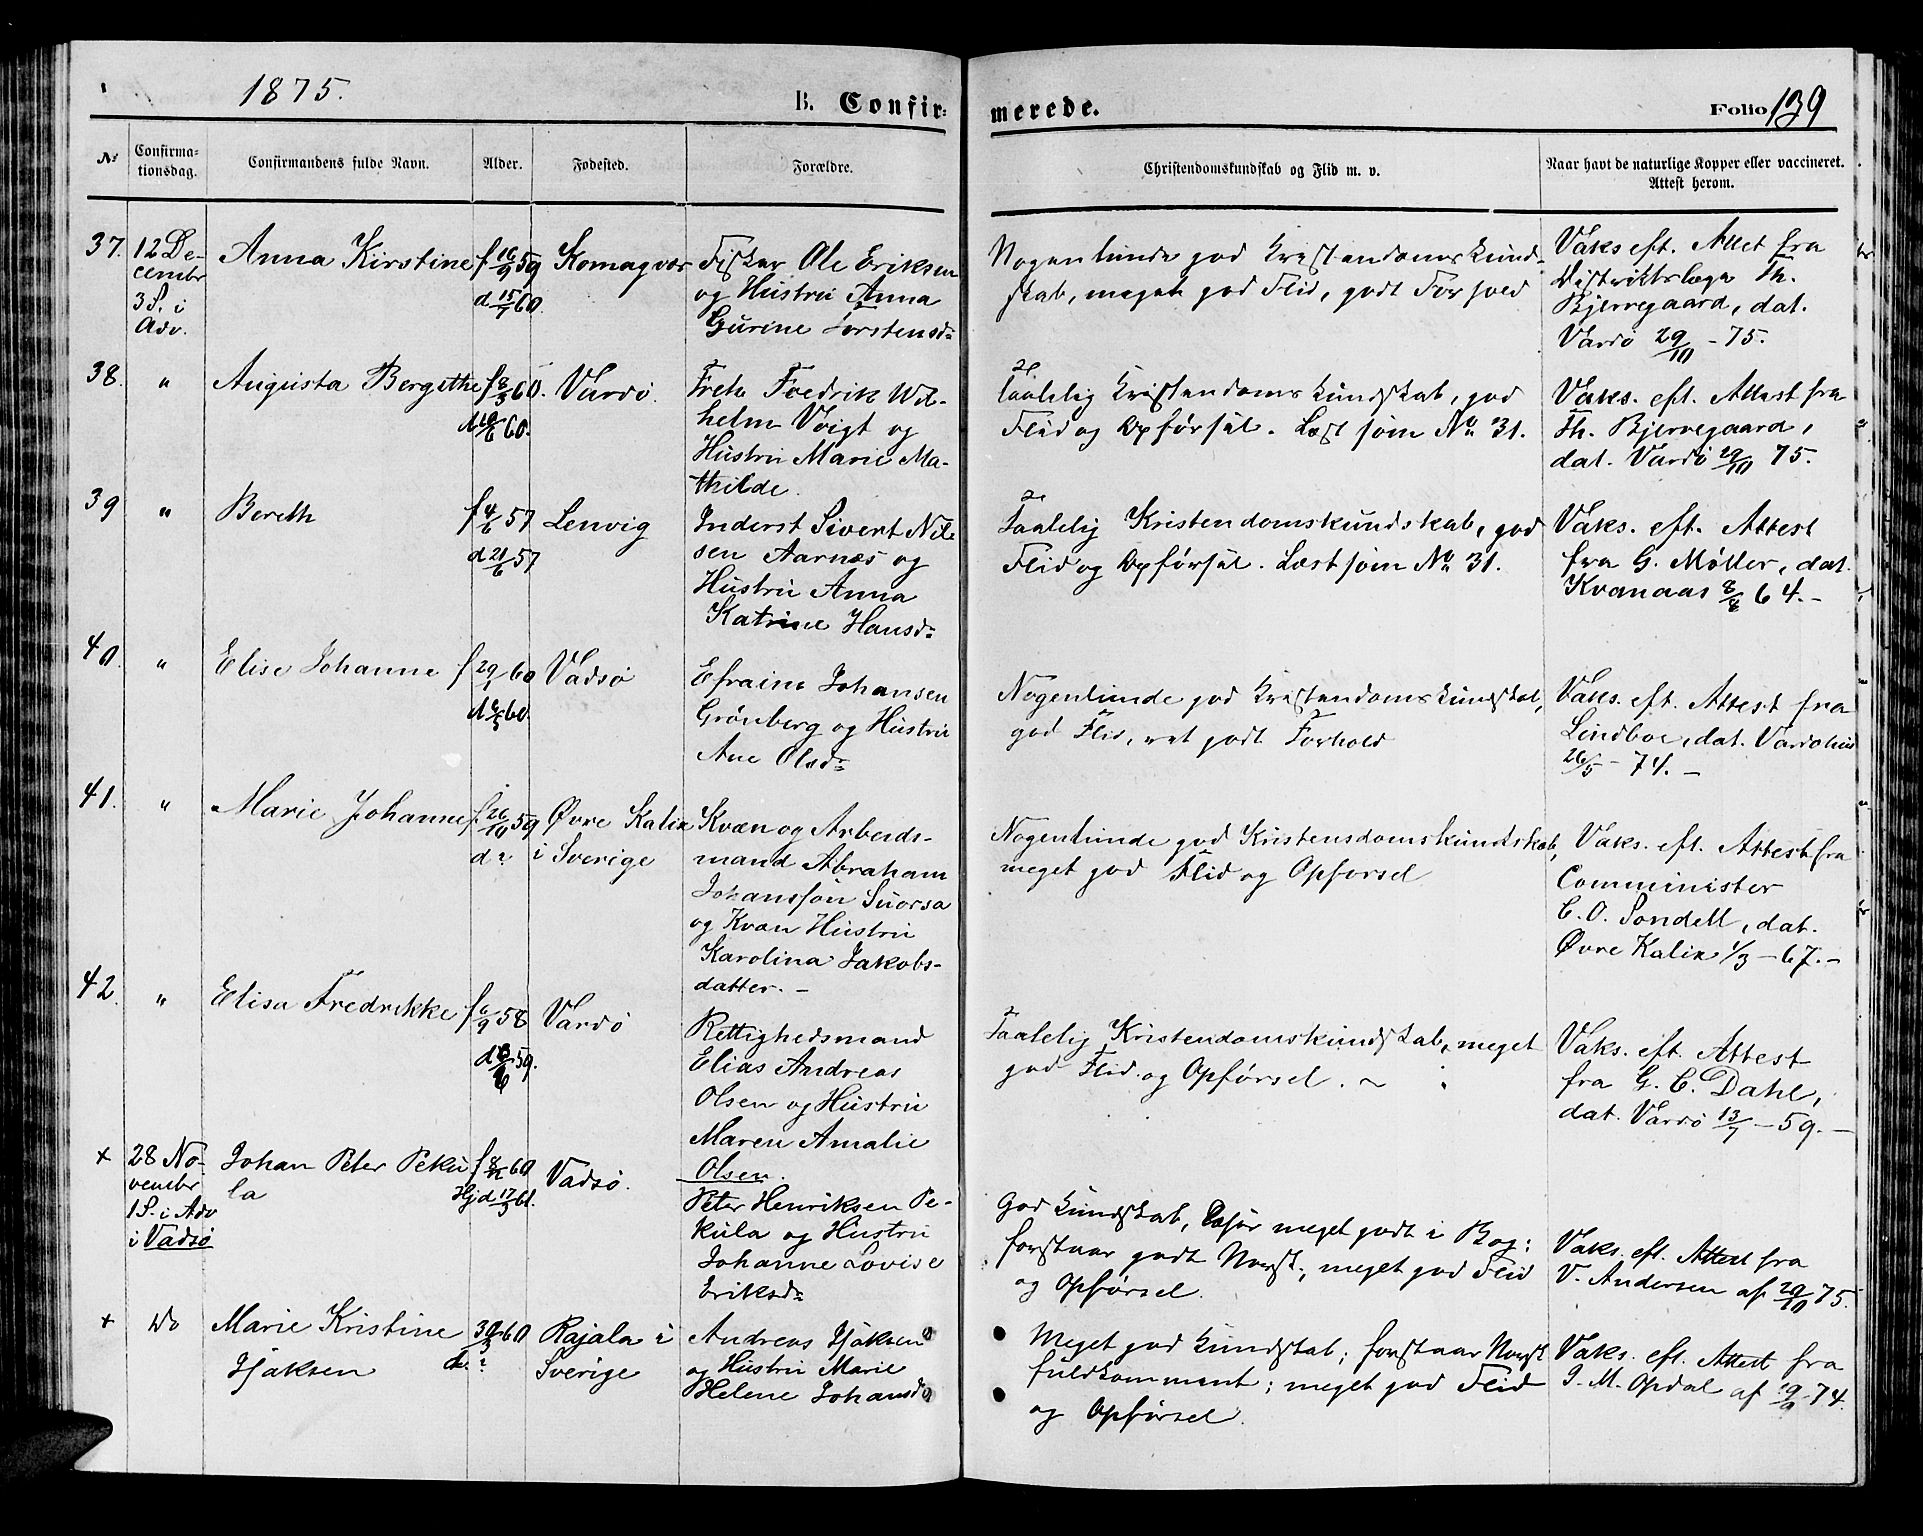 1875.
B. Confir-
merede.
Folio 139
No
Confirma-
tionsdag.
Confirmandens fulde Navn.
Alder.
Fødested.
Forældre.
Christendomskundskab og Flid m. v.
Naar havt de naturlige Kopper eller vaccineret.
Attest herom.
37.
12 De-
cembr
3 S. i
Adv.
Anna Kirstine
f 16/9 59
d 15/7 60.
Komagvær
Fisker Ole Eriksen
og Hustru Anna
Gurine Torstensd:
Nogenlunde god Kristendomskund-
skab, meget god Flid, godt Forhold
Vaks eft. Attet fra
Distriktslæge Th.
Bjerregaard, dat.
Vardø 29/10 - 75.
38.
"
Augusta Bergithe
f 8/3 60.
d 10/6 60.
Vardø.
Fredrik Wil-
helm Voigt og
Hustru Marie Ma-
thilde.
Taalelig Kristendomskundskab, god
Flid og Opførsel. Læst som No 31.
Vaks. eft. Attest fra
Th. Bjerregaard,
dat. Vardø 29/10 75.
39
"
Bereth
f 4/6 57
d 21/6 57
Lenvig
Inderst Sivert Nil-
sen Aarnæs og
Hustru Anna
Katrine Hansd:
Taalelig Kristendomskundskab, god
Flid og Opførsel. Læst som No 31.
Vaks. eft. Attest
fra G. Møller, dat.
Kvanaas 8/8 64. -
40.
"
Elise Johanne
f 29/1 60
60.
Vadsø
Efraim Johansen
Grønberg og Hustru
Ane Olsd:
Nogenlunde god Kristendomskundskab,
god Flid, ret godt Forhold
Vaks. eft. Attest fra
Lindboe, dat. Vardøhus
26/5 - 74. -
41.
"
Marie Johanne
f. 26/10 59
d ?
Øvre Kalix
i Sverige
Kvæn og Arbeids-
mand Abraham
Johanssøn Suorsa
og Kvæn Hustru
Karolina Jakobs-
datter. -
Nogenlunde god Kristensdomskundskab,
meget god Flid og Opførsel
Vaks. eft. Attest fra
Comminister
C. O. Sondell, dat.
Øvre Kalix 1/3 - 67. -
42.
"
Elisa Fredrikke
f 6/9 58
59.
Vardø
Rettighedsmand
Elias Andreas
Olsen og Hustru
Maren Amalie
Olsen.
Taalelig Kristendomskundskab, meget
god Flid og Opførsel. ~
Vaks. eft. Attest
fra G. C. Dahl,
dat. Vardø 13/7 - 59. -
+
28 No-
vembr
1 S. i Adv
i Vadsø
Johan Peter Peku
la
f 8/12 60
Hjd 17/3 61.
Vadsø.
Peter Henriksen Pe-
kula og Hustru
Johanne Lovise
Eriksd:
God Kundskab, læser meget godt i Bog;
forstaar godt Norsk; meget god Flid
og Opførsel.
Vaks. eft. Attest fra
V. Andersen af 29/10 75.
+
Do
Marie Kristine
Isaksen
60
d. ?
Pajala i
Sverige
Andreas Isaksen
og Hustru Marie
Helene Johansd
Meget god Kundskab; forstaar Norsk
fuldkomment; meget god Flid
og Opførsel.
Vaks. eft. Attest fra
J. M. Opdal af 19/9 74.